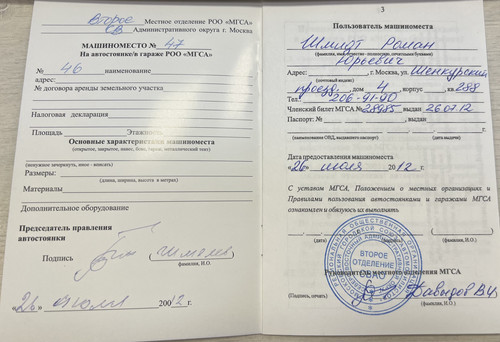 Второе Местное отделение РОО «МГСА»
СВ Административного округа г. Москва
МАШИНОМЕСТО № 47
На автостоянке/в гараже РОО «МГСА»
№ 46 наименование
Адрес:
№ договора аренды земельного участка
Налоговая декларация
Площадь Этажность
Основные характеристики машиноместа
(открытое, закрытое, навес, бокс, гараж, металлический тент)
(ненужное зачеркнуть, иное - вписать)
Размеры:
(длина, ширина, высота в метрах)
Материалы
Дополнительное оборудование
Председатель правления
автостоянки
Подпись
(фамилия, И.О.)
«26» июля 2012 г.
3
Пользователь машиноместа
Шмидт Роман
(фамилия, имя, отчество - полностью, печатными буквами)
Юрьевич
Адрес: , г. Москва, ул. Шенкурский
(почтовый индекс)
проезд, дом 4, корпус , кв. 288
Тел. 206-91-90
Членский билет МГСА № 28985 выдан 26.07.12
Паспорт: № , выдан
(наименование ОВД, выдавшего паспорт) (дата выдачи)
Дата предоставления машиноместа
«26» июля 2012 г.
С уставом МГСА, Положением о местных организациях и
Правилами пользования автостоянками и гаражами МГСА
ознакомлен и обязуюсь их выполнять
(дата) (подпись) (фамилия, И.О.)
ВТОРОЕ
ОТДЕЛЕНИЕ
СВАО
Руководитель местного отделения МГСА
Давыдов В.И.
(Подпись, печать) (фамилия, И.О.)